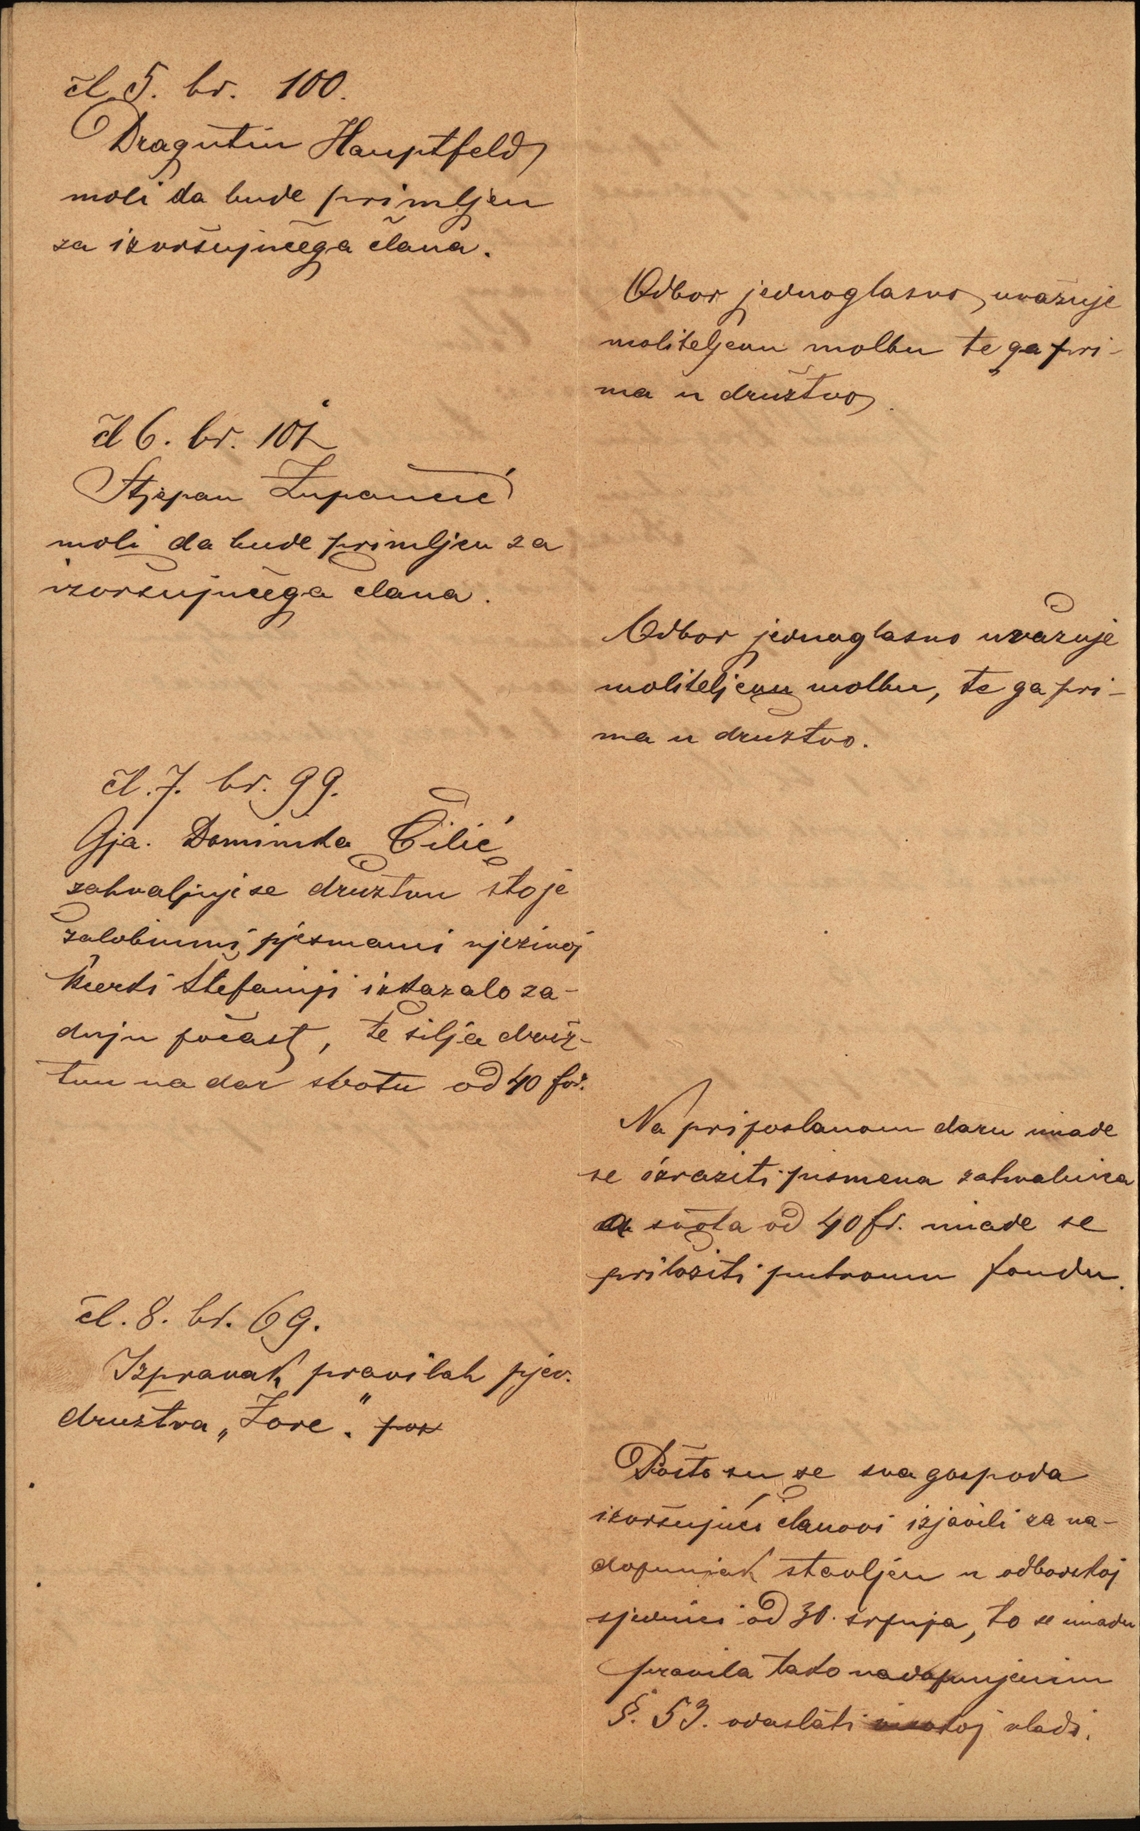 čl. 5. br. 100.
Dragutin Hauptfeld
moli da bude primljen
za izvršujućega člana.
Odbor jednoglasno uvažuje
moliteljevu molbu te ga pri-
ma u družtvo.
čl 6. br. 101
Stjepan Župančić
moli da bude primljen za
izvršujućega člana.
Odbor jednoglasno uvažuje
moliteljevu molbu, te ga pri-
ma u družtvo.
čl. 7. br. 99.
Gja. Dominika Čilić
zahvaljuje se družtvu što je
žalobnimi pjesmami njezinoj
kćerki Štefaniji izkazalo za-
dnju počast, te šilja druž-
tvu na dar svotu od 40 for.
Na pripolanom daru imade
se izraziti pismena zahvalnica
a svota od 40 fr. imade se
priložiti putnomu fondu.
čl. 8. br. 69.
Izpravak pravilah pjev.
družtva „Zore“.
Pošto su se sva gospoda
izvršujući članovi izjavili za na-
dopunjak stavljen u odborskoj
sjednici od 30. srpnja, to se imadu
pravila tako nadopunjenim
§. 53. odaslati visokoj vladi.